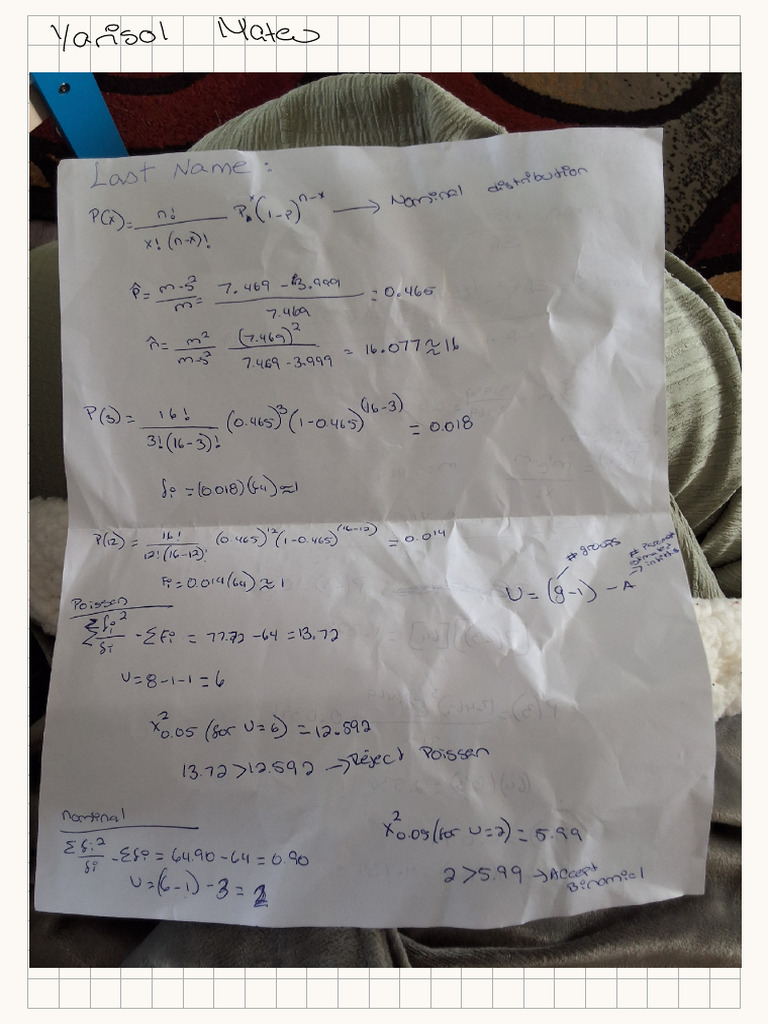 Yarisol Mateo
Last Name:
P(x) = n! / x!(n-x)! P^x (1-P)^n-x → Nominal distribution
p̂ = m-s² / m = 7.469 - 3.999 / 7.469 = 0.465
n̂ = m² / m-s² (7.469)² / 7.469-3.999 = 16.077 ≈ 16
P(3) = 16! / 3!(16-3)! (0.465)^3 (1-0.465)^(16-3) = 0.018
fi = (0.018)(64) ≈ 1
P(12) = 16! / 12!(16-12)! (0.465)^12 (1-0.465)^(16-12) = 0.014
Fi = 0.014(64) ≈ 1
# groups
U = (g-1) - A
Poissen
Σfi² / fi - ΣFi = 77.72 - 64 = 13.72
U = 8-1-1 = 6
X²0.05 (for U=6) = 12.592
13.72 > 12.592 → Reject Poissen
nominal
Σfi² / fi - Σfi = 64.90 - 64 = 0.90
U = (6-1) - 3 = 2
X²0.05 (for U=2) = 5.99
2 > 5.99 → Accept
Binomial